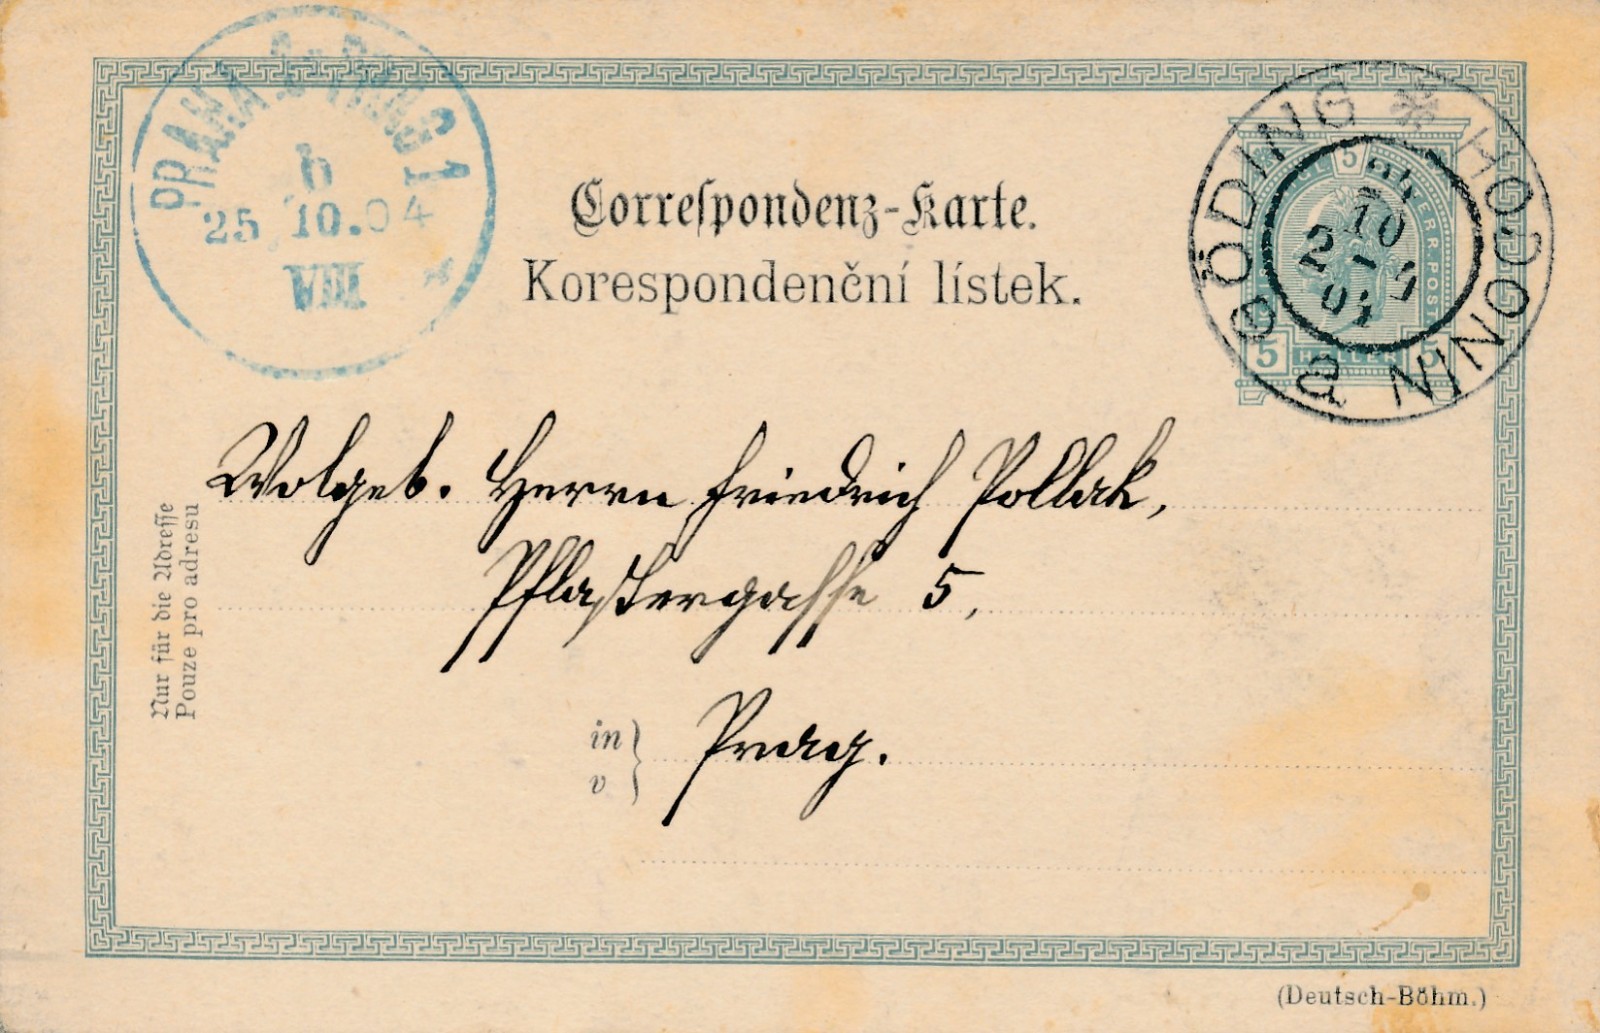 PRAHA 1 PRAG 1
b
25 10.04
VIII.
GÖDING * HODONIN
24
10
04
5
5 HELLER 5
Correspondenz-Karte.
Korespondenční lístek.
Nur für die Adresse
Pouze pro adresu
Wolgeb. Herrn Friedrich Pollak,
Pflastergasse 5,
in
v
Prag.
(Deutsch-Böhm.)